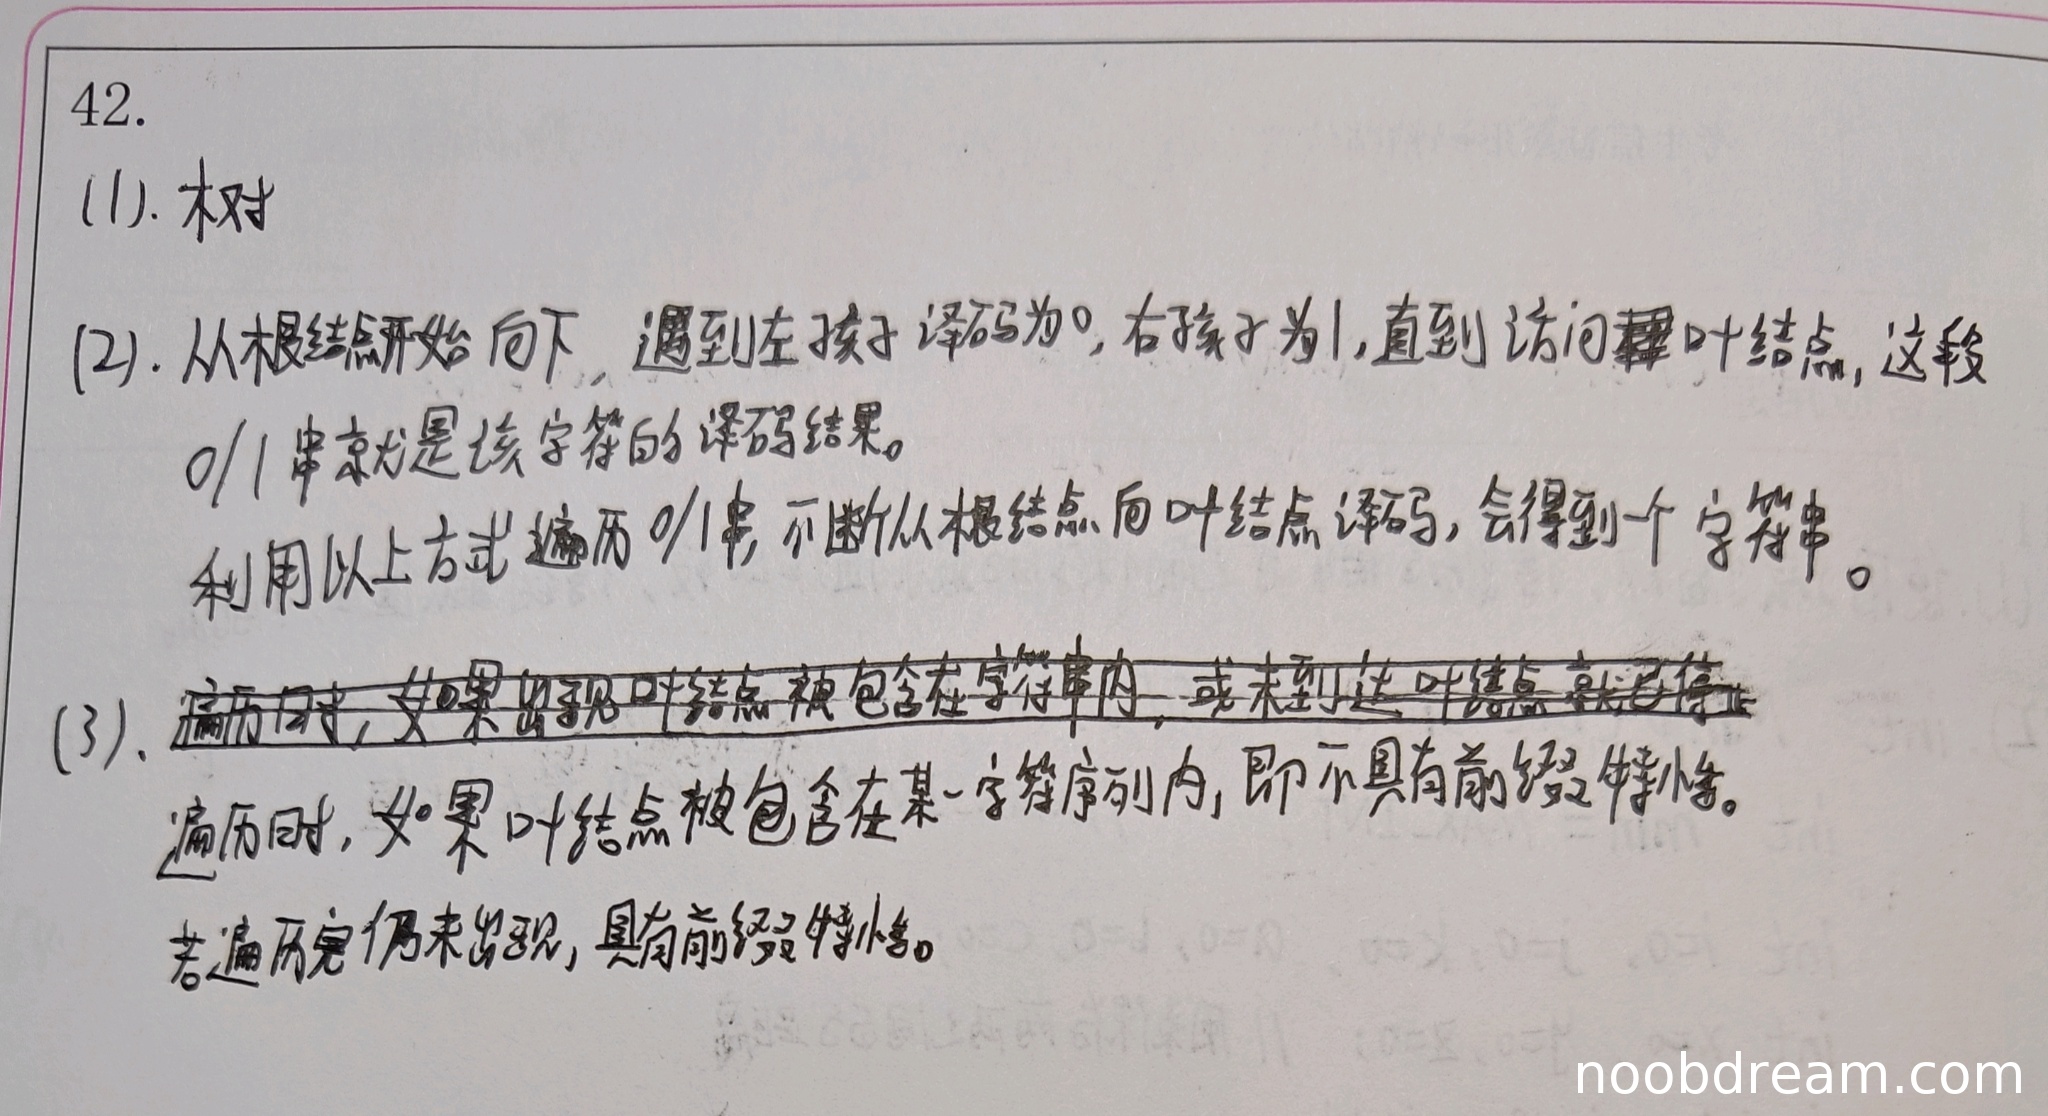 42.
(1). 树
(2). 从根结点开始向下, 遇到左孩子译码为0, 右孩子为1, 直到访问叶结点, 这段
0/1串就是该字符的译码结果。
利用以上方式遍历0/1串, 不断从根结点向叶结点译码, 会得到一个字符串。
(3). 遍历时, 如果出现叶结点被包含在字符串内, 或未到达叶结点就已停止
遍历时, 如果叶结点被包含在某一字符序列内, 即不具有前缀特性。
若遍历完仍未出现, 具有前缀特性。
noobdream.com